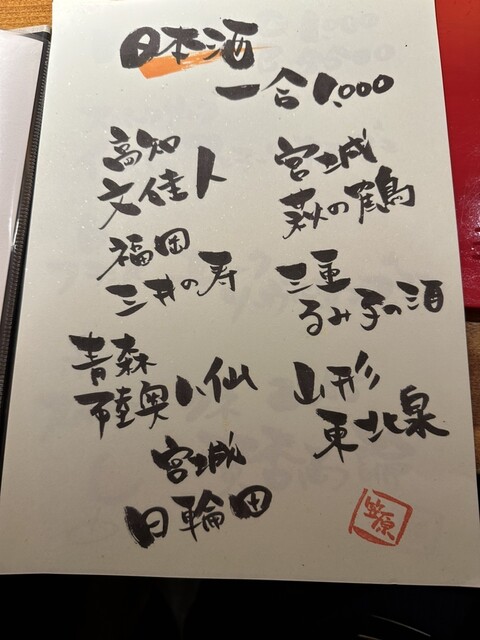 日本酒
一合 1,000
高知
文佳人
宮城
萩の鶴
福岡
三井の寿
三重
るみ子の酒
青森
陸奥八仙
山形
東北泉
宮城
日輪田
笠原